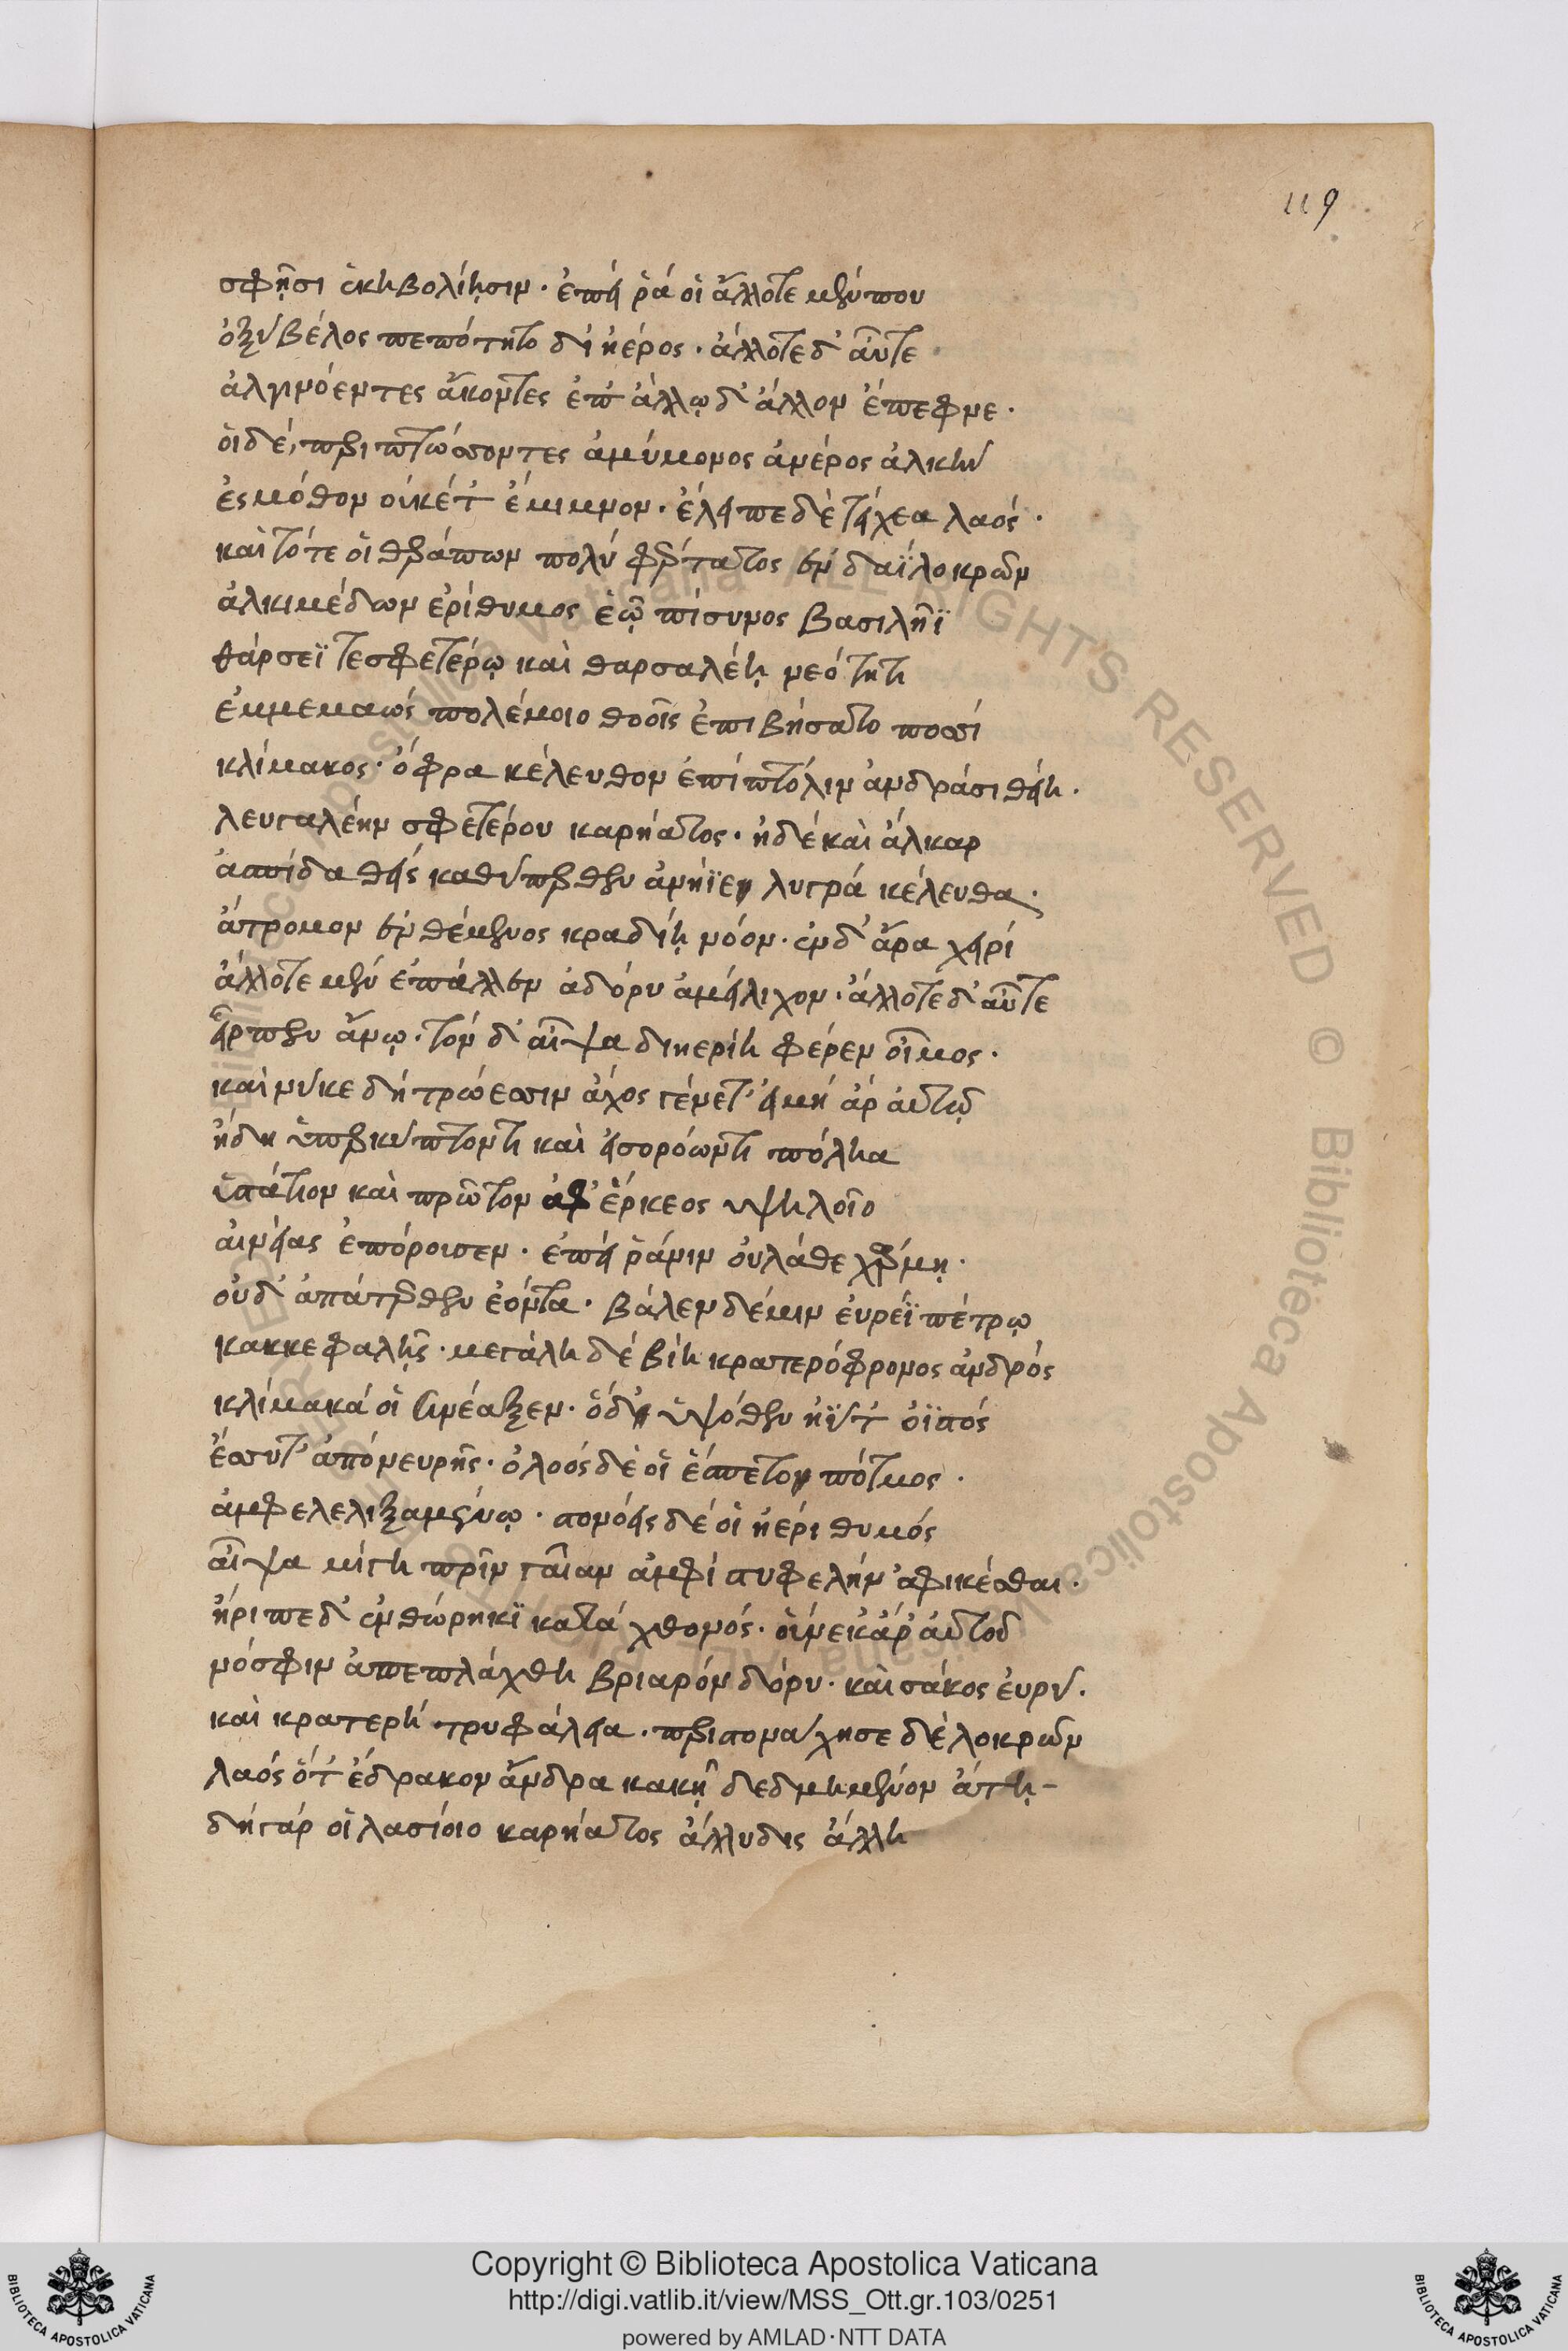 119
σφῇσι ἑκηβολίῃσιν· ἐπεὶ ῥά οἱ ἄλλοτε μέν που
ὀξὺ βέλος πεπότητο δι' ἠέρος· ἄλλοτε δ' αὖτε
ἀλγινόεντες ἄκοντες ἐπ' ἄλλῳ δ' ἄλλον ἔπεφνε·
οἱ δέ, περιπτώσσοντες ἀμύμονος ἀνέρος ἀλκὴν
ἐς μόθον οὐκέτ' ἔμιμνον· ἔλειπε δὲ τείχεα λαός·
καὶ τότε οἱ θεράπων πολὺ φέρτατος ἐν δαῒ λοκρῶν
ἀλκιμέδων ἐρίθυμος ἑῷ πίσυνος βασιλῆϊ
θάρσεϊ τε σφετέρῳ καὶ θαρσαλέῃ νεότητι
ἐμμεμαὼς πολέμοιο θοοῖς ἐπιβήσατο ποσσὶ
κλίμακος· ὄφρα κέλευθον ἐπὶ πτόλιν ἀνδράσι θείη·
λευγαλέην σφετέρου καρήατος· ἠδὲ καὶ ἄλκαρ
ἀσπίδα θεὶς καθύπερθεν ἀνήϊε λυγρὰ κέλευθα·
ἄτρομον ἐνθέμενος κραδίῃ νόον· ἐν δ' ἄρα χειρὶ
ἄλλοτε μὲν ἐπάλλεν ἀδόρυ ἀμείλιχον· ἄλλοτε δ' αὖτε
εἷρπεν ἄνω· τὸν δ' αἶψα διηερίη φέρεν οἶμος·
καὶ νύ κε δὴ τρώεσσιν ἄχος γένετ' εἰ μὴ ἀρ' αὐτῷ
ἤδη ὑπερκύπτοντι καὶ εἰσορόωντι πόληα
ὑστάτιον καὶ πρῶτον ἀφ' ἕρκεος ὑψηλοῖο
αἰνείας ἐπόρουσεν· ἐπεὶ ῥά μιν οὐ λάθε χάρμη·
οὐδ' ἀπάτερθεν ἐόντα· βάλεν δέ μιν εὐρέϊ πέτρῳ
κακκεφαλῆς· μεγάλη δὲ βίη κρατερόφρονος ἀνδρὸς
κλίμακά οἱ συνέαξεν· ὁ δ' ὑψόθεν ἠΰτ' ὀϊστὸς
ἔσσυτ' ἀπὸ νευρῆς· ὀλοὸς δέ οἱ ἕσπετο πότμος·
ἀμφελελιξαμένῳ· στονόεις δέ οἱ ἠέρι θυμὸς
αἶψα μίγη πρὶν γαῖαν ἀμφὶ στυφελὴν ἀφικέσθαι·
ἤριπε δ' ἐν θώρηκι κατὰ χθονός· οὕνεκ' ἄρ' αὐτοῦ
νόσφιν ἀπεπλάχθη βριαρὸν δόρυ· καὶ σάκος εὐρύ·
καὶ κρατερὴ τρυφάλεια· περιστονάχησε δὲ λοκρῶν
λαὸς ὅτ' ἔδρακον ἄνδρα κακῇ δεδμημένον ἄτῃ-
δὴ γάρ οἱ λασίοιο καρήατος ἄλλυδις ἄλλη
Copyright © Biblioteca Apostolica Vaticana
http://digi.vatlib.it/view/MSS_Ott.gr.103/0251
powered by AMLAD·NTT DATA